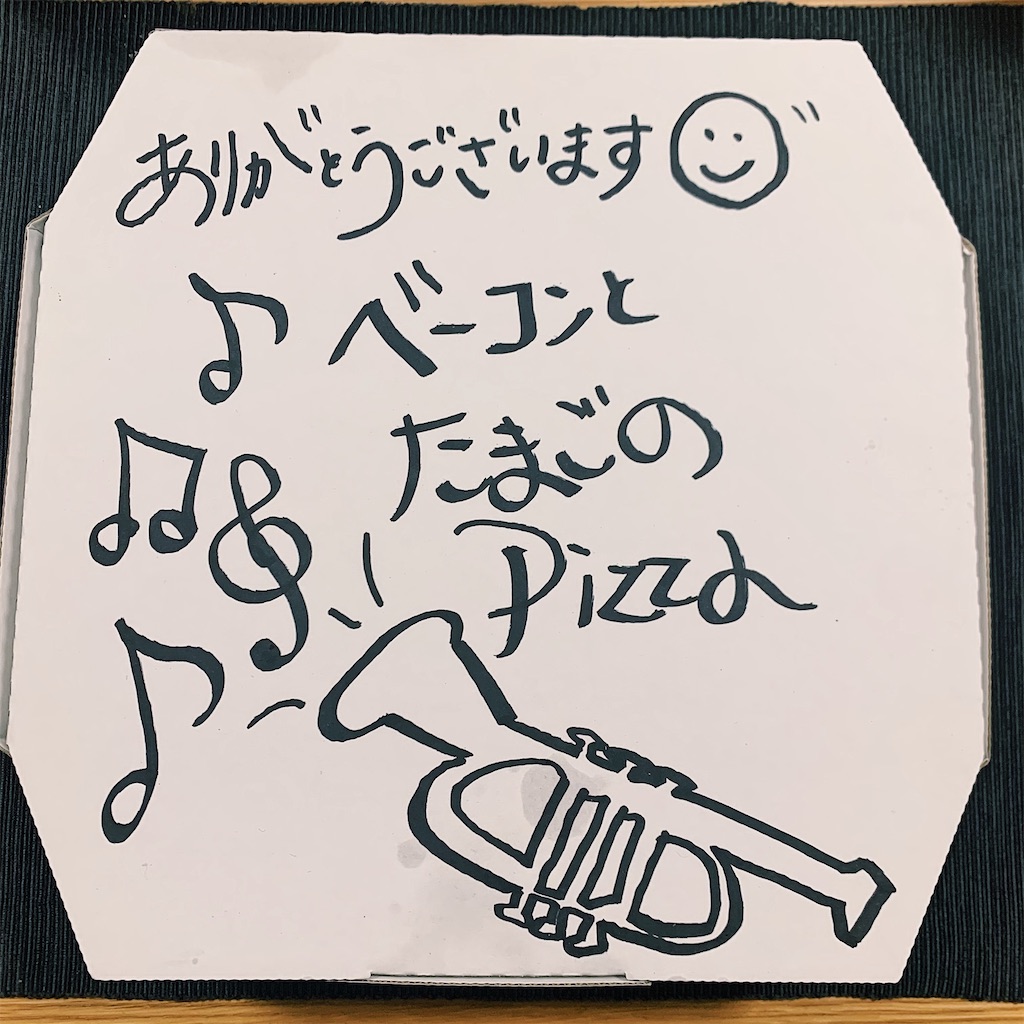 ありがとうございます
ベーコンと
たまごの
Pizza